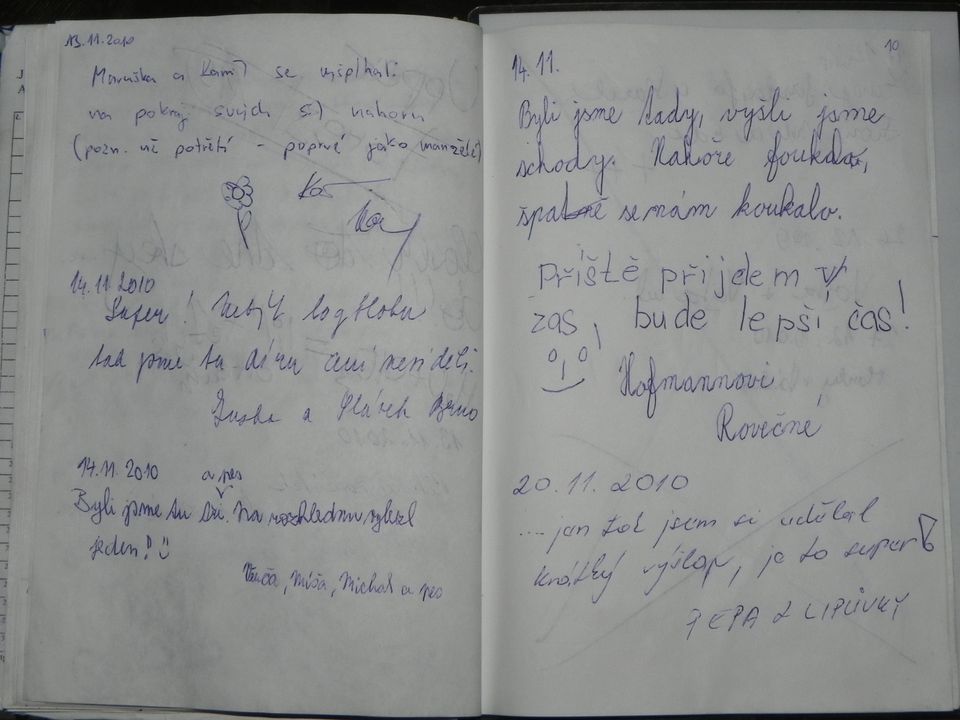 13.11.2010
Maruška a Kamil se vyšplhali
na pokraj svých sil nahoru
(pozn. už potřetí - poprvé jako manželé)
14.11.2010
Super! Nebýt logbooku
tad jsme tu díru ani neviděli.
Zuzka a Brno
14.11.2010
a pes
Byli jsme tu tři. Na rozhlednu vylezl
jeden!
Míša, Michal a pes
10
14.11.
Byli jsme tady, vyšli jsme
schody. Nahoře foukalo,
špatně se nám koukalo.
Příště přijdem
zas, bude lepší čas!
Hofmannovi
Rovečné
20.11.2010
...jen tak jsem si udělal
krátký výšlap, je to super!
PEPA Z LIPŮVKY